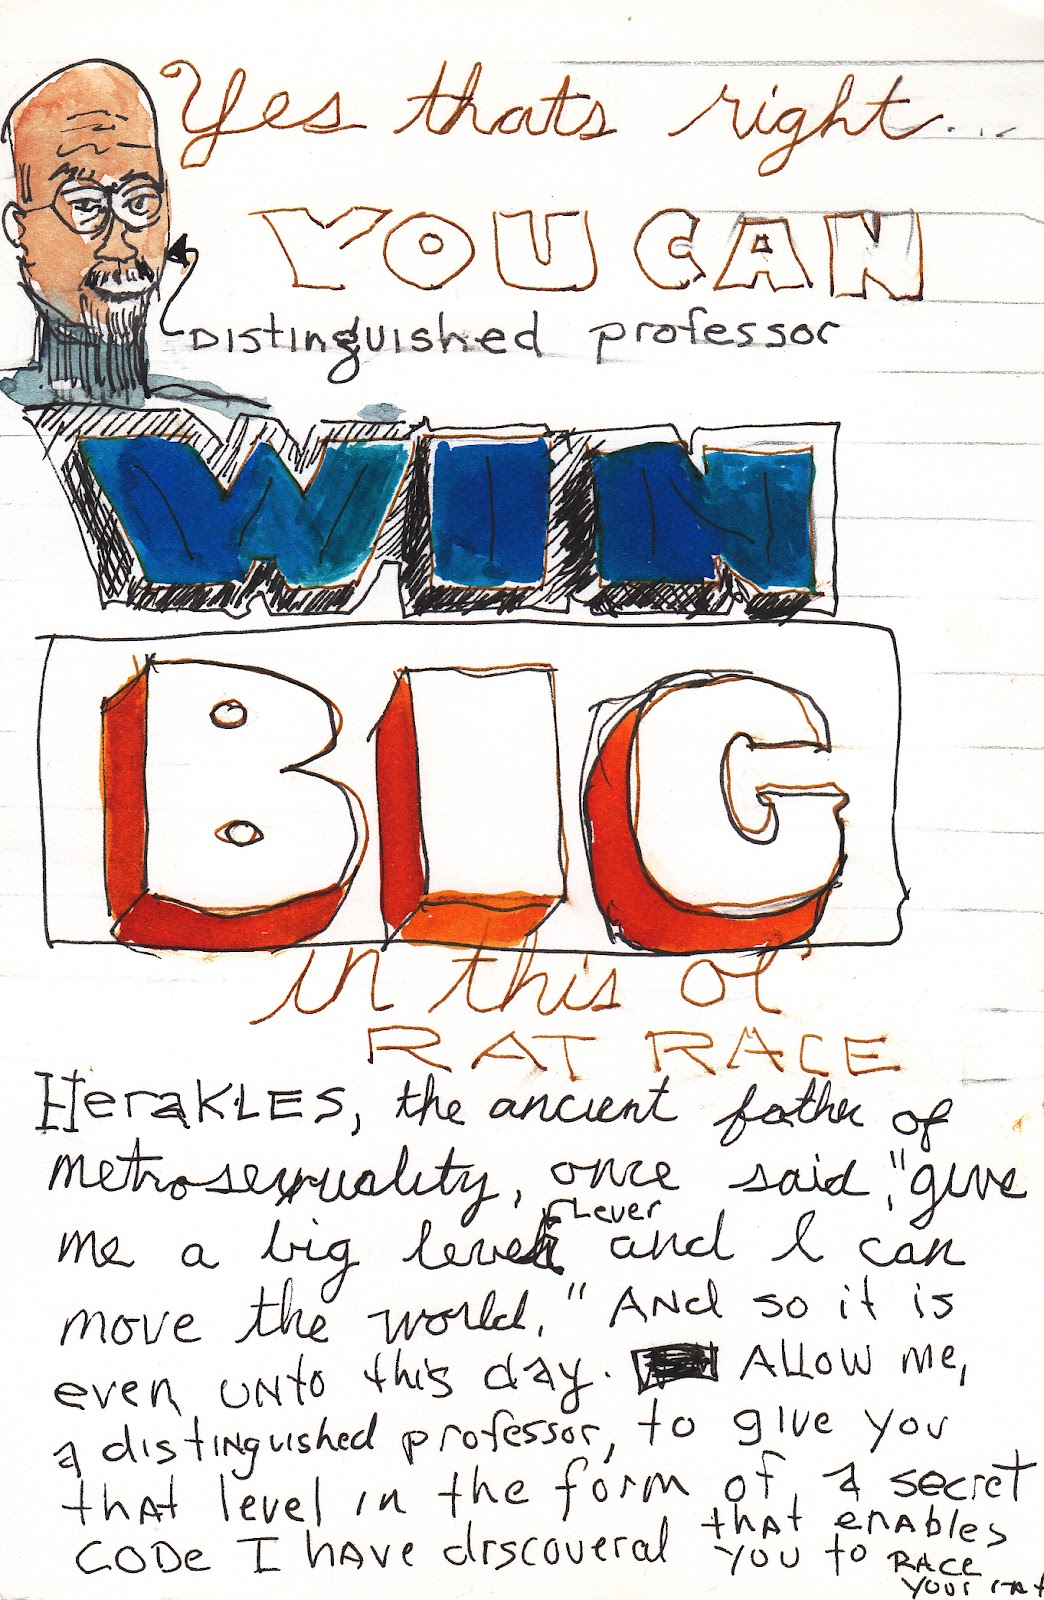 Yes thats right...
YOU CAN
Distinguished professor
WIN
BIG
in this ol'
RAT RACE
HeraKLES, the ancient father of
metrosexuality, once said, "give
Lever
me a big lever and I can
move the world." And so it is
even unto this day. Allow me,
a distinguished professor, to give you
that level in the form of a secret
code I have discoveral that enables
you to RACE
your rat